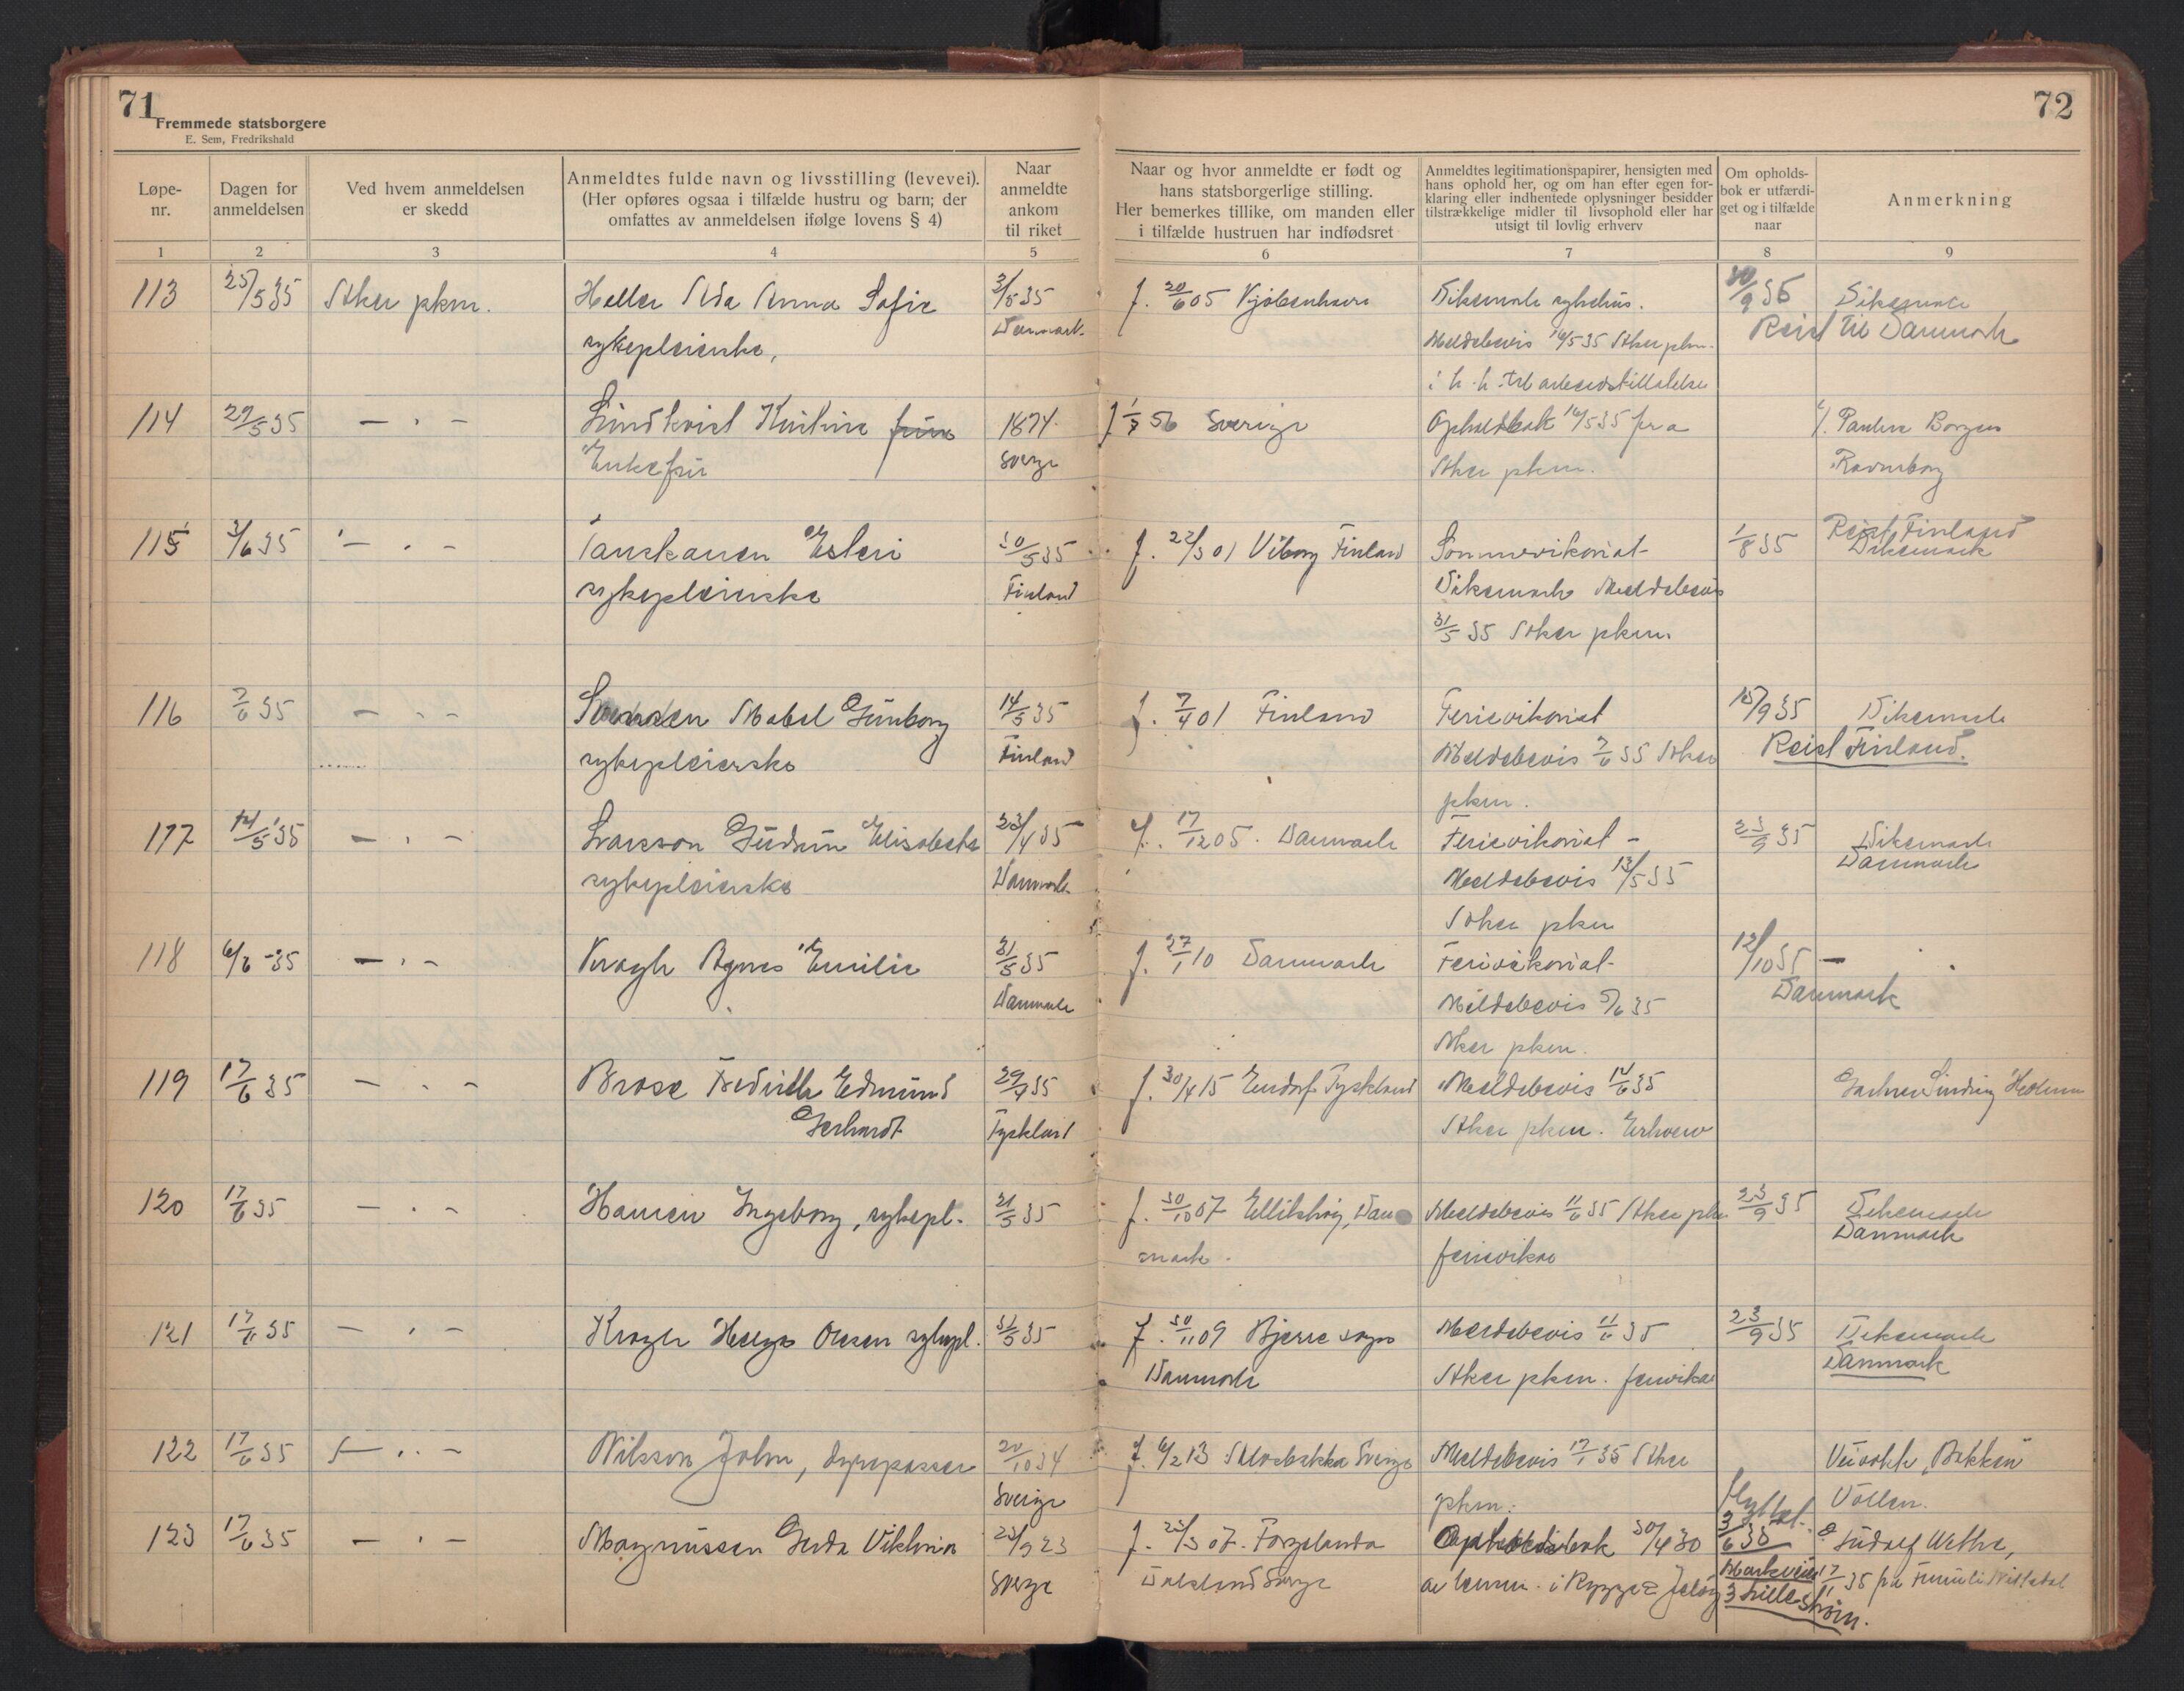 71
Fremmede statsborgere
E. Sem, Fredrikshald
72
Løpe-
nr.
Dagen for
anmeldelsen
Ved hvem anmeldelsen
er skedd
Anmeldtes fulde navn og livsstilling (levevei).
(Her opføres ogsaa i tilfælde hustru og barn; der
omfattes av anmeldelsen ifølge lovens § 4)
Naar
anmeldte
ankom
til riket
Naar og hvor anmeldte er født og
hans statsborgerlige stilling.
Her bemerkes tillike, om manden eller
i tilfælde hustruen har indfødsret
Anmeldtes legitimationspapirer, hensigten med
hans ophold her, og om han efter egen for-
klaring eller indhentede oplysninger besidder
tilstrækkelige midler til livsophold eller har
utsigt til lovlig erhverv
Om opholds-
bok er utfærdi-
get og i tilfælde
naar
Anmerkning
1 2 3 4 5 6 7 8 9
113 25/5 35 Aker pkm. Heller Ida Anna Sofie 3/5 35 f. 20/6 05 Kjøbenhavn Dikemark sykehus. 30/9 35 Dikemark
Danmark. Reist til Danmark
sykepleierske, Meldebevis 16/5 35 Aker pkm.
i h. h. til arbeidstillatelse
114 29/5 35 — · — Lindkvist Kristine frue 1874 f 1/7 56 Sverige Opholdsbok 16/5 35 fra Paulus Borgen
Enkefru Sverge Aker pkm. Ravnsborg
115 3/6 35 — · — Tanskanen Esteri 30/5 35 f. 22/3 01 Viborg Finland Sommervikariat 1/8 35 Reist Finland
Dikemark
sykepleierske Finland Dikemark Meldebevis
31/5 35 Aker pkm.
116 7/6 35 — · — Svensen Mabel Gunborg 14/5 35 f. 7/4 01 Finland Ferievikariat 15/9 35 Dikemark
sykepleierske Finland Meldebevis 7/6 35 Aker Reist Finland.
pkm.
117 14/5 35 — · — Larsson Gudrun Elisabeth 23/4 35 f. 17/12 05. Danmark Ferievikariat - 23/9 35 Dikemark
Danmark
sykepleierske Danmark Meldebevis 13/5 35
Aker pkm
118 6/6 -35 — · — Kragh Agnes Emilie 31/5 35 f. 27/1 10 Danmark Ferievikariat- 12/10 35 —
Danmark Meldebevis 5/6 35 Danmark
Aker pkm.
119 17/6 35 — · — Brose Fredrich Edmund 29/4 35 f. 30/4 15 Tyskland Meldebevis 14/6 35
Gerhardt Tyskland Aker pkm. Erhverv
120 17/6 35 — · — Hansen Ingeborg, sykepl. 31/5 35 f. 30/10 07 Ellitshøj, Dan Meldebevis 11/6 35 Aker pkm 23/9 35 Dikemark
mark. ferievikar Danmark
121 17/6 35 — · — Kragh Helga Olesen sykepl. 31/5 35 f. 30/11 09 Bjerre sogn Meldebevis 11/6 35 23/9 35 Dikemark
Danmark Aker pkm. ferievikar Danmark
122 17/6 35 — · — Nilsson John, dyrepasser 20/10 34 f. 6/2 13 Sverge Meldebevis 17/1 35 Aker Bakken
Sverige pkm. Vollen.
flyttet.
123 17/6 35 — · — Magnussen Gerda Viktoria 25/9 23 f. 25/3 07. Färgelanda Opholdsbok 30/4 30 3/6 38 Ludolf
Sverge Dalsland Sverge av lensm. i Rygge Jeløy Markveien 17/11 35
3 Lillestrøm.